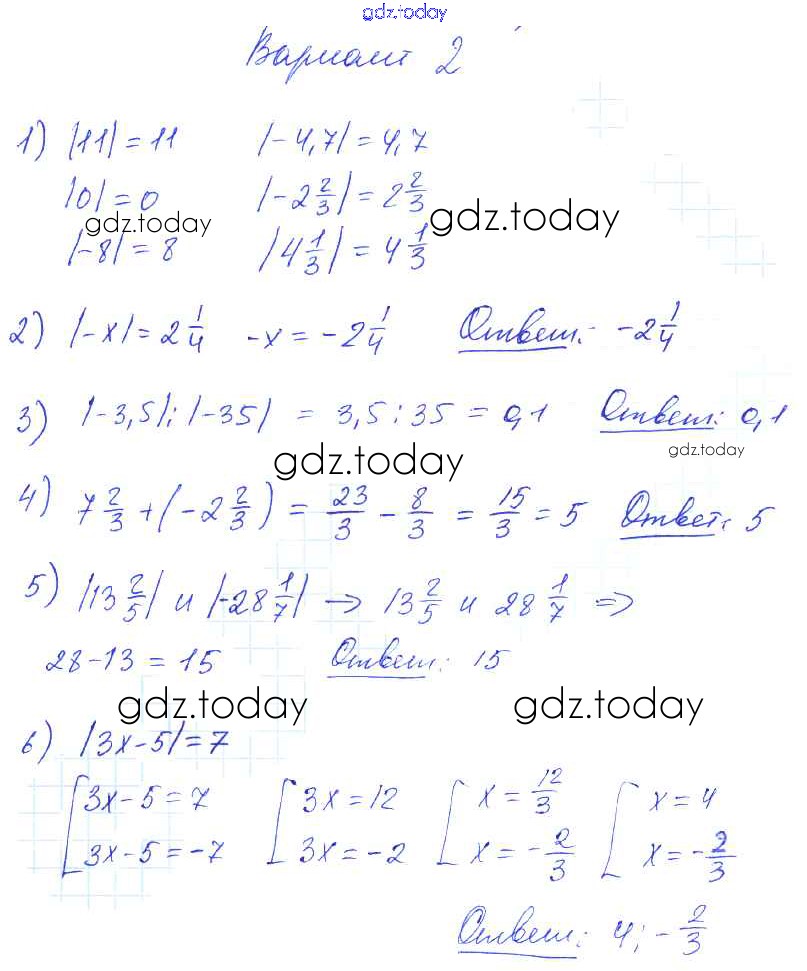 gdz.today
Вариант 2
1) |11| = 11 |-4,7| = 4,7
|0| = 0 |-2 2/3| = 2 2/3
gdz.today gdz.today
|-8| = 8 |4 1/3| = 4 1/3
2) |-x| = 2 1/4 -x = -2 1/4 Ответ: -2 1/4
3) |-3,5| : |-35| = 3,5 : 35 = 0,1 Ответ: 0,1
gdz.today gdz.today
4) 7 2/3 + (-2 2/3) = 23/3 - 8/3 = 15/3 = 5 Ответ: 5
5) |13 2/5| и |-28 1/7| → 13 2/5 и 28 1/7 ⇒
28 - 13 = 15 Ответ: 15
gdz.today gdz.today
6) |3x - 5| = 7
[3x - 5 = 7 [3x = 12 [x = 12/3 [x = 4
3x - 5 = -7 3x = -2 x = -2/3 x = -2/3
Ответ: 4; -2/3